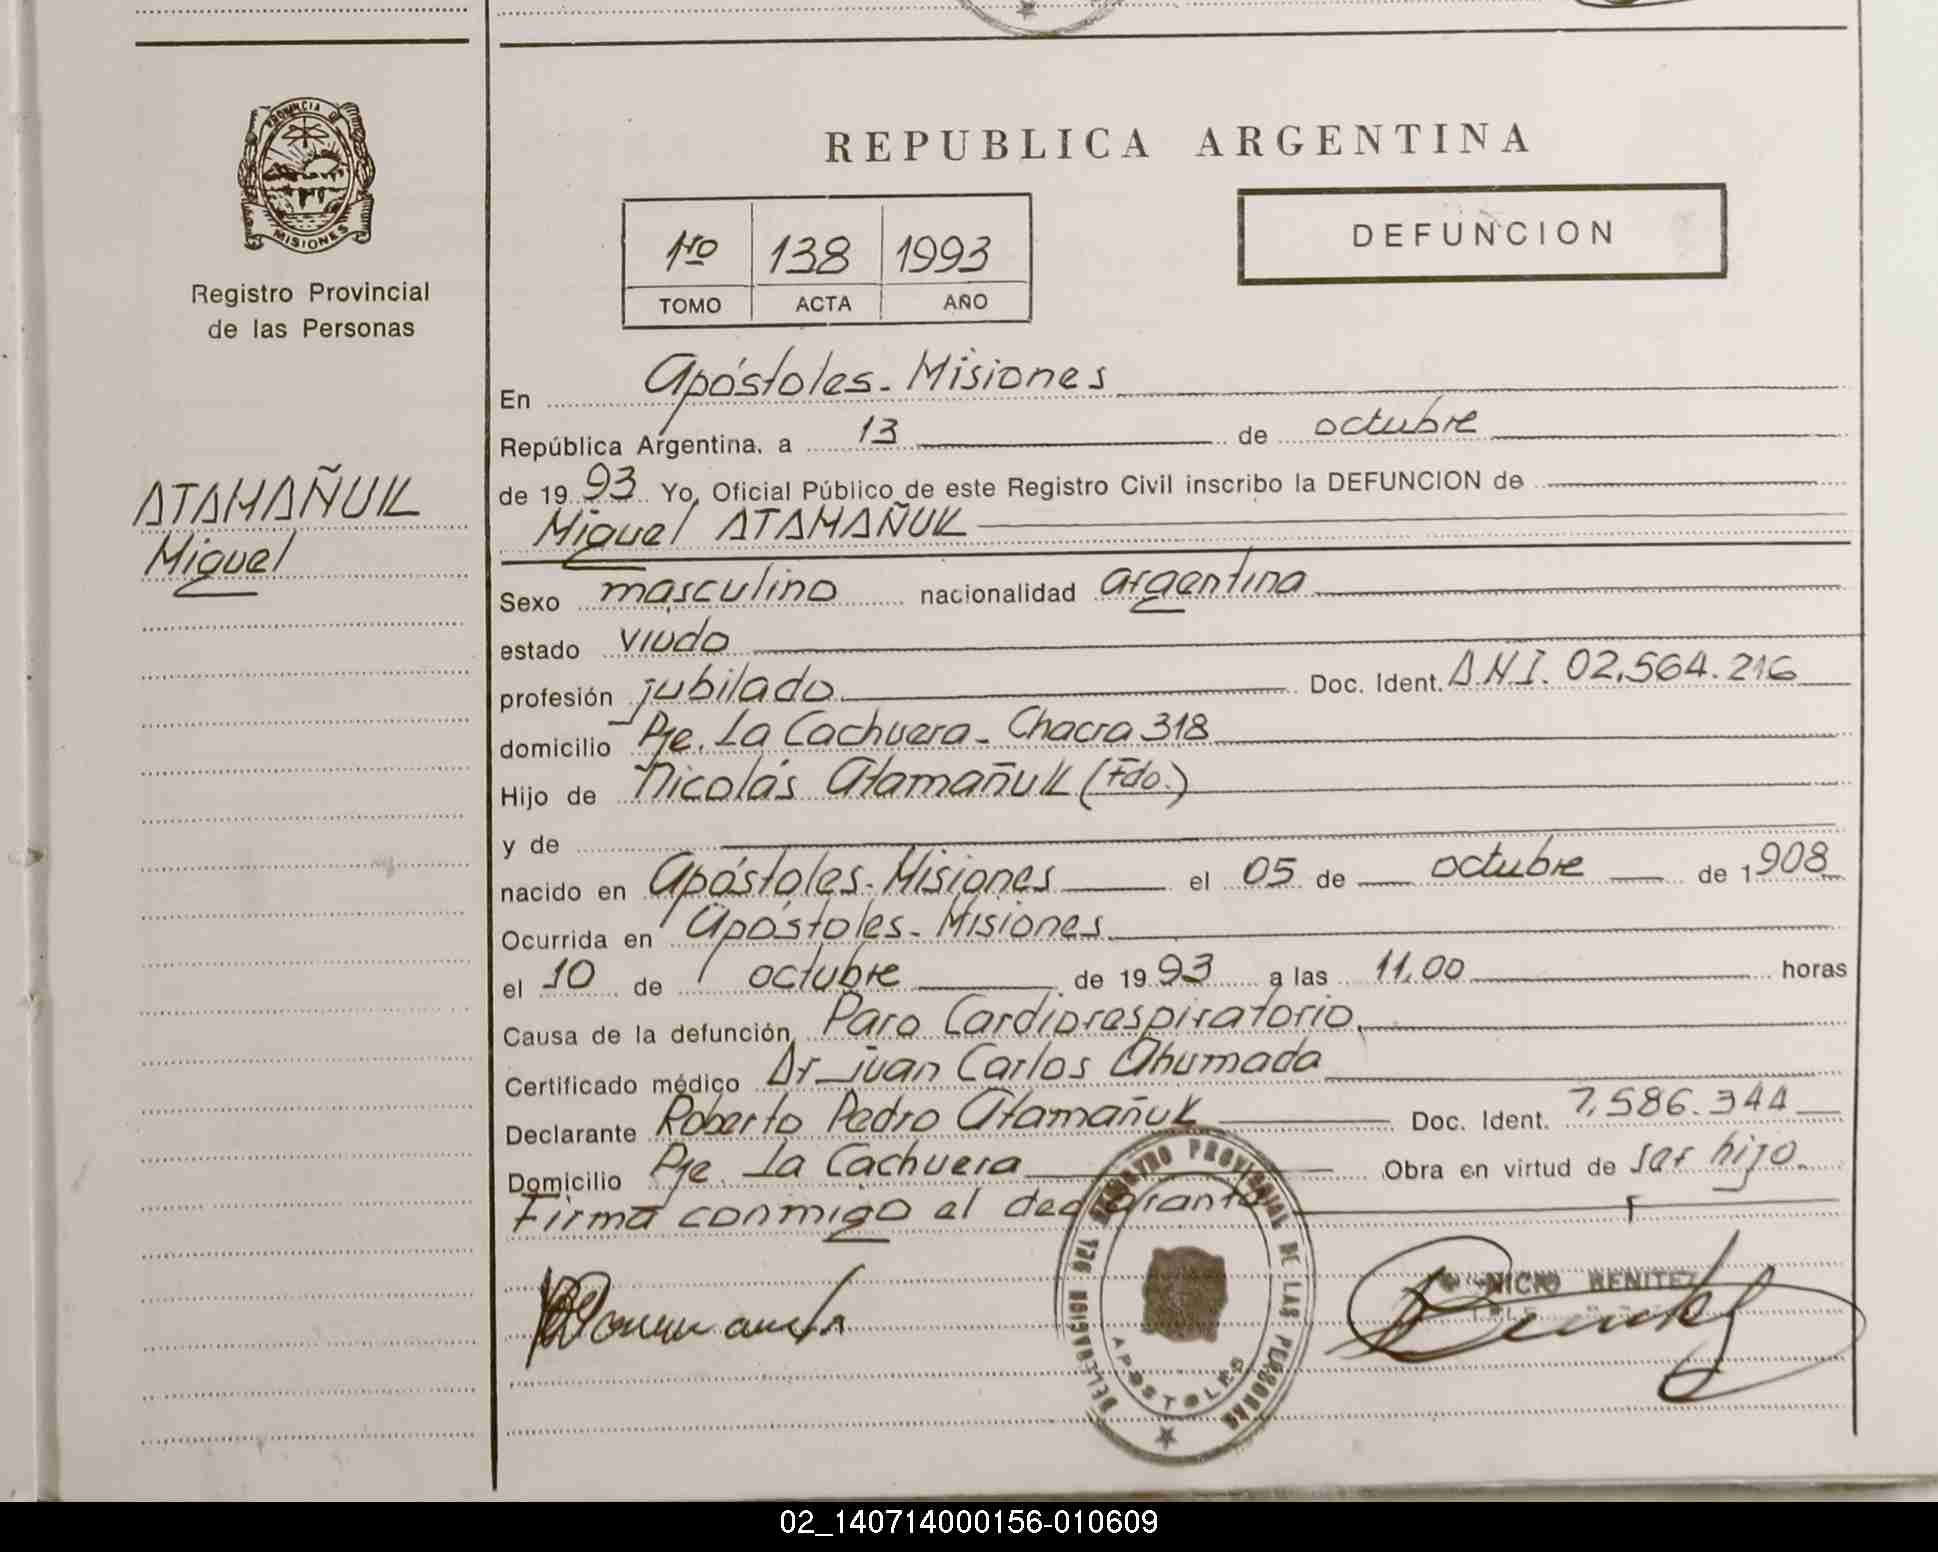 PROVINCIA DE
MISIONES
Registro Provincial
de las Personas
ATAMAÑUK
Miguel
REPUBLICA ARGENTINA
1ro 138 1993
TOMO ACTA AÑO
DEFUNCION
En Apóstoles - Misiones
República Argentina, a 13 de octubre
de 1993 Yo, Oficial Público de este Registro Civil inscribo la DEFUNCION de
Miguel ATAMAÑUK
Sexo masculino nacionalidad argentina
estado viudo
profesión jubilado Doc. Ident. D.N.I. 02.564.216
domicilio Pje. La Cachuera - Chacra 318
Hijo de Nicolás Atamañuk (Fdo.)
y de
nacido en Apóstoles - Misiones el 05 de octubre de 1908
Ocurrida en Apóstoles - Misiones
el 10 de octubre de 1993 a las 11,00 horas
Causa de la defunción Paro Cardiorespiratorio.
Certificado médico Dr. Juan Carlos Ahumada
Declarante Roberto Pedro Atamañuk Doc. Ident. 7.586.344
Domicilio Pje. La Cachuera Obra en virtud de ser hijo.
Firma conmigo el declarante
DELEGACION DEL REGISTRO PROVINCIAL DE LAS PERSONAS
APOSTOLES
BENITEZ
02_140714000156-010609